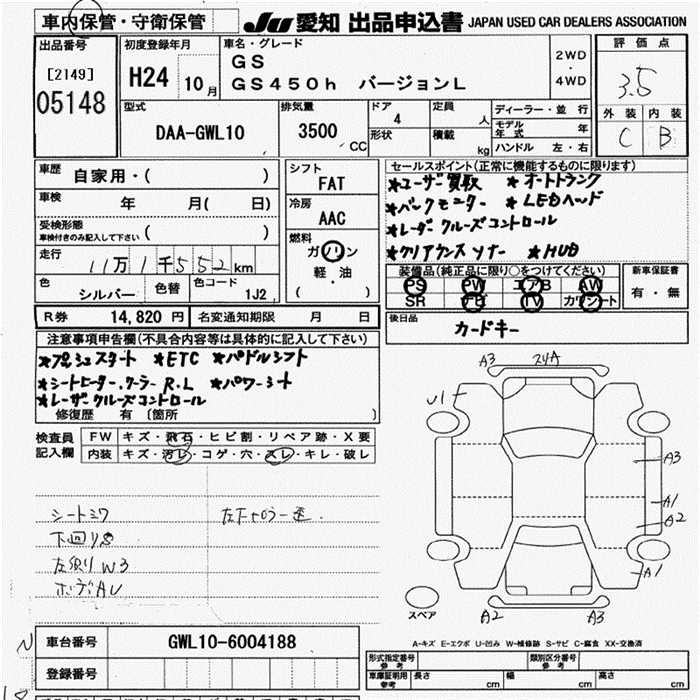 車内保管・守衛保管
JU 愛知 出品申込書 JAPAN USED CAR DEALERS ASSOCIATION
出品番号
[2149]
05148
初度登録年月
H24 10月
車名・グレード
GS
GS450h バージョンL
2WD
・
4WD
評価点
3.5
外装 内装
C B
型式
DAA-GWL10
排気量
3500 CC
ドア
4
形状
定員
人
積載
kg
ディーラー・並行
モデル年式 年
ハンドル 左・右
車歴
自家用・( )
車検
年 月( 日)
受検形態
車検付きのみ記入して下さい
( )
走行
11万1千552km
色
シルバー
色替
色コード
1J2
シフト
FAT
冷房
AAC
燃料
ガソリン
軽・油
( )
セールスポイント(正常に機能するものに限ります)
★ユーザー買取 ★オートトランク
★バックモニター ★LEDヘッド
★レーダークルーズコントロール
★クリアランスソナー ★HUD
装備品(純正品に限り○をつけてください)
PS PW エアB AW
SR ナビ TV カワシート
新車保証書
有・無
R券 14,820円
名変通知期限 月 日
後日品
カードキー
注意事項申告欄(不具合内容等は具体的に記入して下さい)
★プッシュスタート ★ETC ★パドルシフト
★シートヒーター.クーラー R.L ★パワーシート
★レーザークルーズコントロール
修復歴 有 〔箇所 〕
検査員記入欄
FW キズ・飛石・ヒビ割・リペア跡・X要
内装 キズ・汚レ・コゲ・穴・スレ・キレ・破レ
シートシワ
下回りS
W3
ボデーAU
A3
U1
A3
A1
A2
A1
A2
A3
スペア
A-キズ E-エクボ U-凹み W-補修跡 S-サビ C-腐食 XX-交換済
車台番号
GWL10-6004188
登録番号
形式指定番号
参考
類別区分番号
参考
車庫証明用
参考
長さ cm
幅 cm
高さ cm